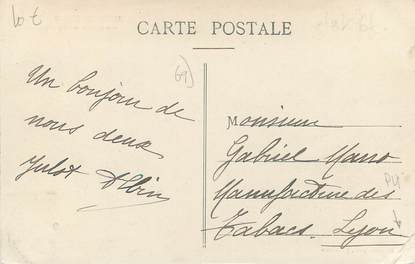 Lot
CARTE POSTALE
69
Un bonjour de
nous deux
Julot
Monsieur
Gabriel
Manufacture des
Tabacs. Lyon